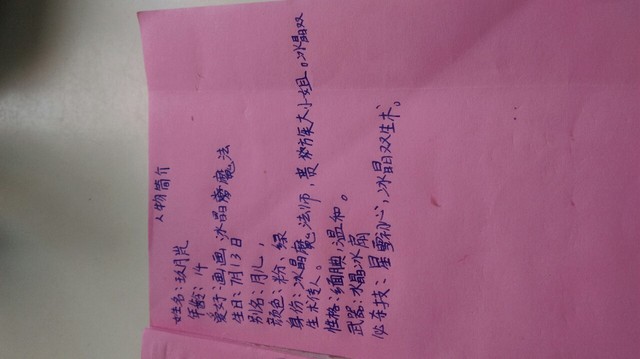 人物简介
姓名:玖月岚
年龄:14
爱好:画画,冰晶魔法
生日:7月13日
别名:月儿,
颜色:粉、绿
身份:冰晶魔法师,贵族大小姐。冰晶双
生术传人。
性格:腼腆,温和。
武器:水晶冰扇
必杀技:星雪初心,冰晶双生术。